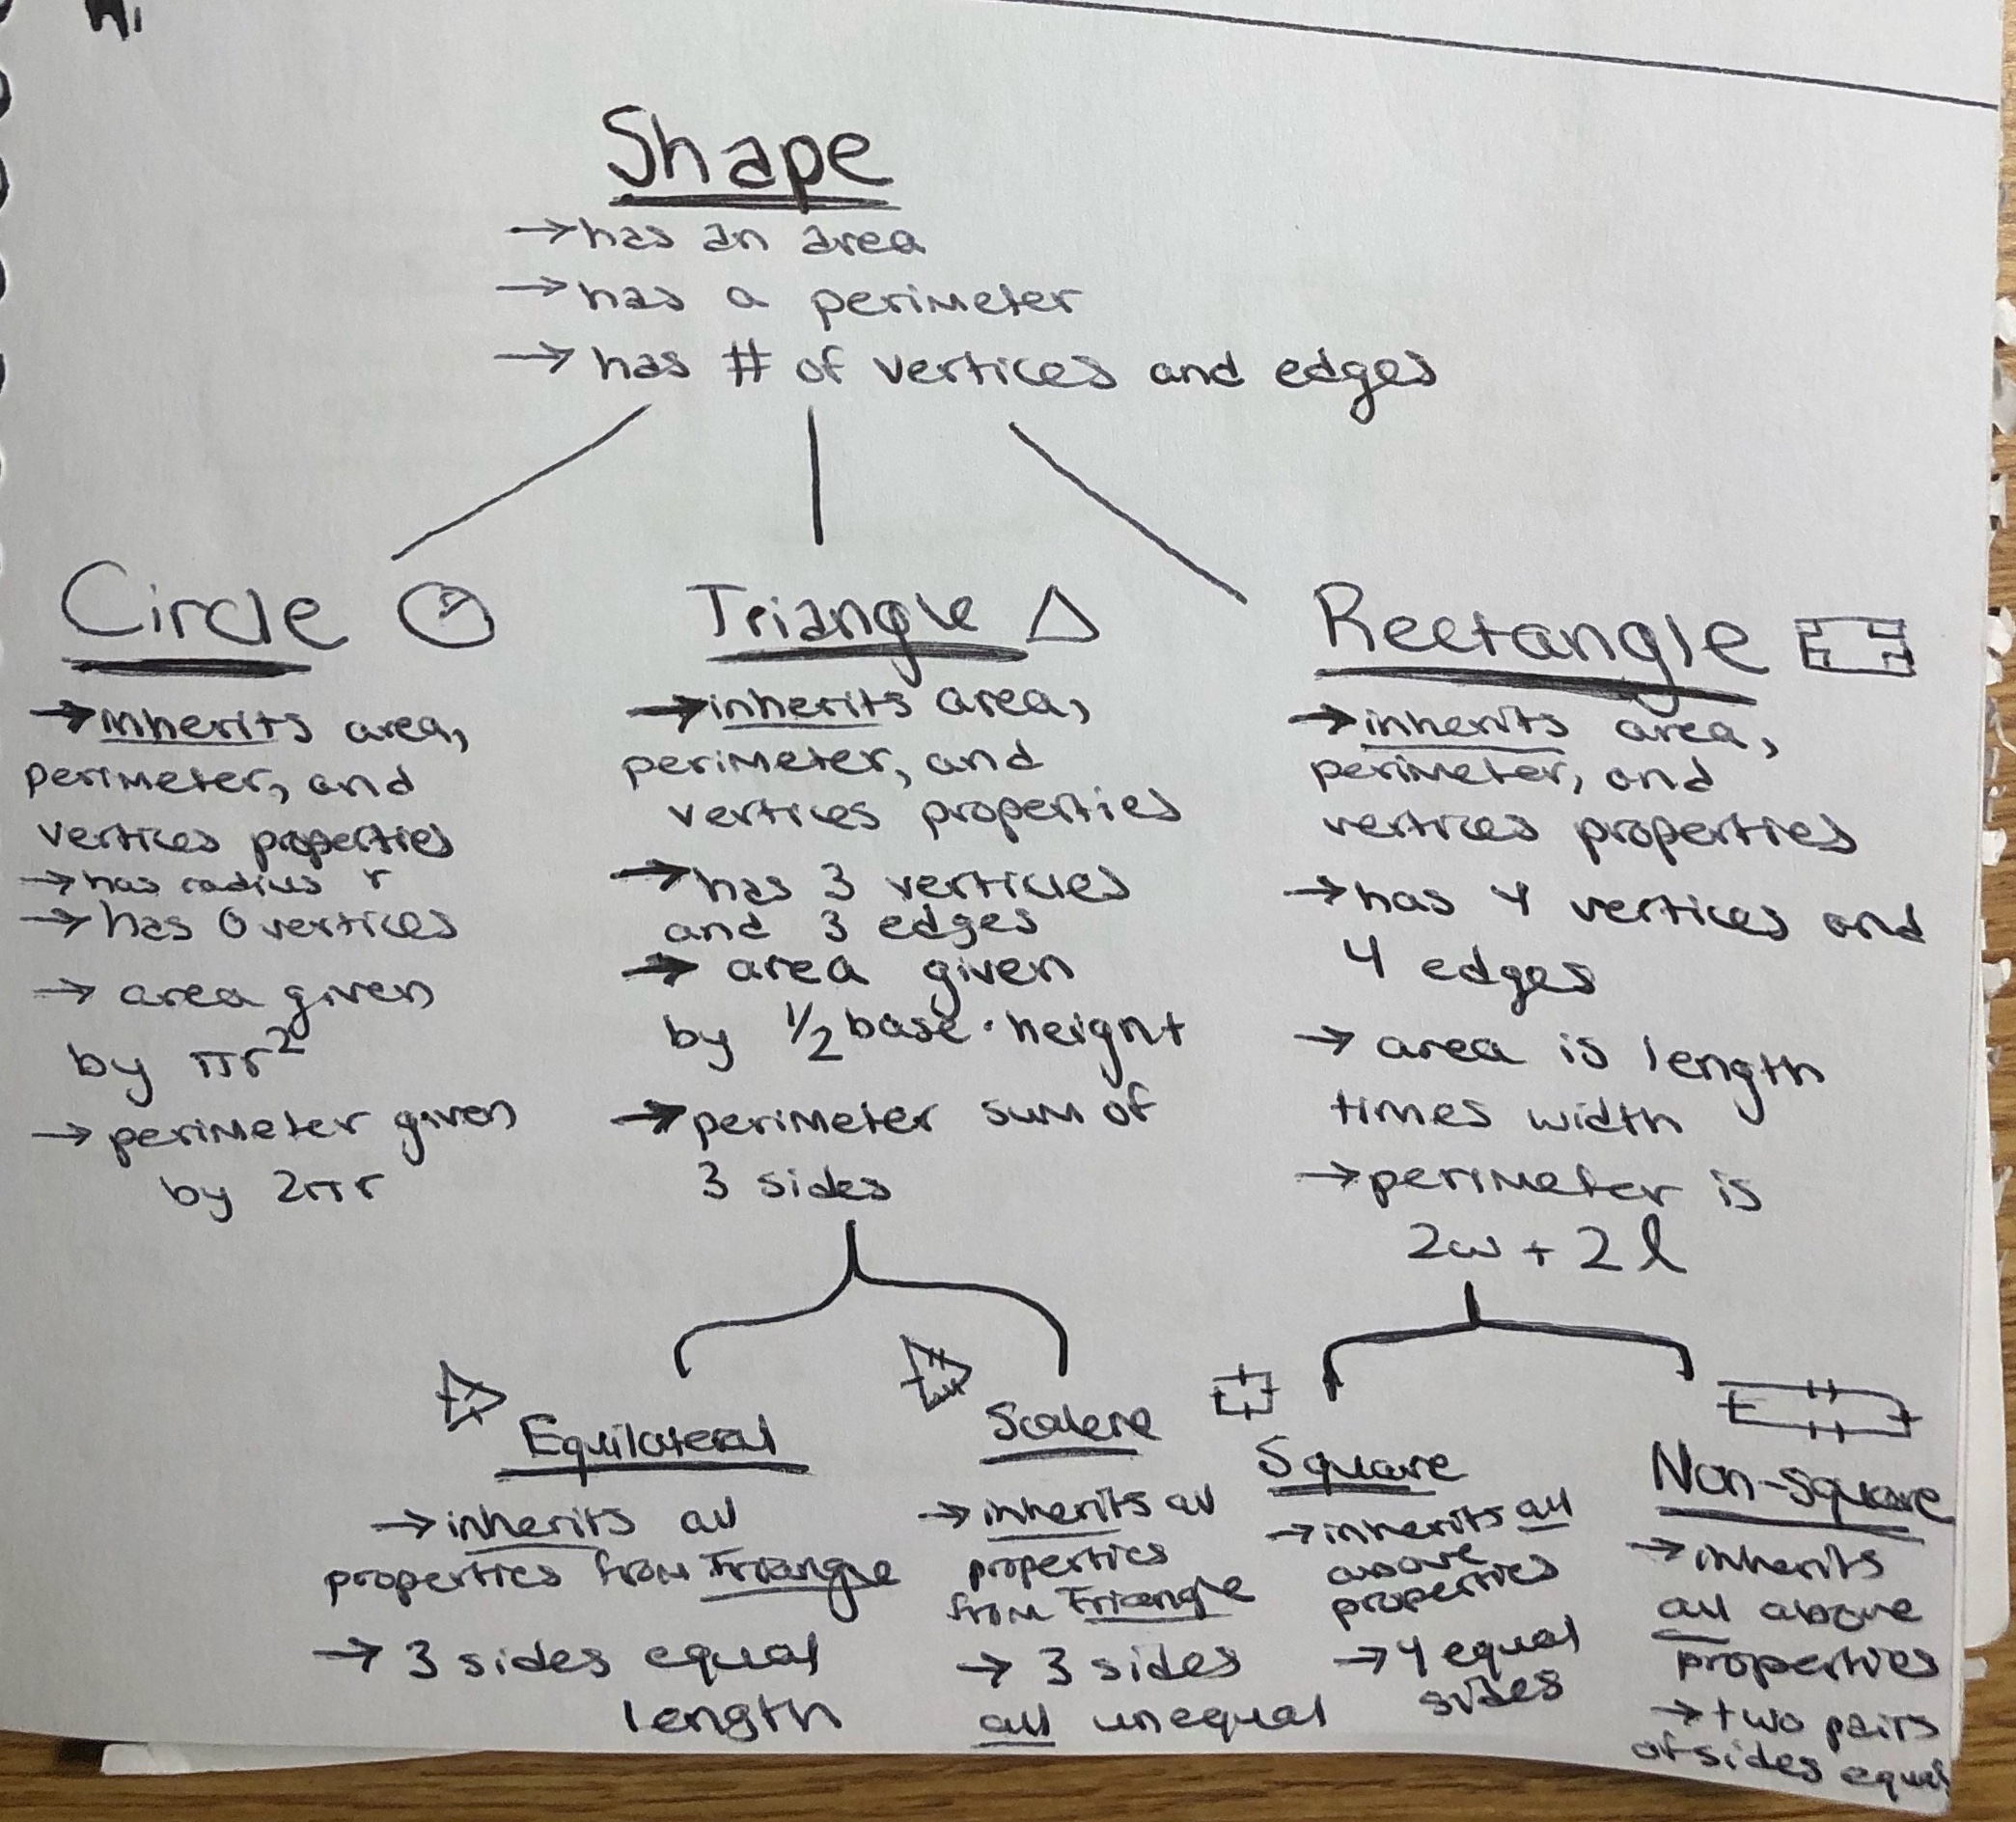 Hi
Shape
→has an area
→has a perimeter
→has # of vertices and edges
Circle
→inherits area,
perimeter, and
vertices properties
→has radius r
→has 0 vertices
→ area given
by πr²
→perimeter given
by 2πr
Triangle
→inherits area,
perimeter, and
vertices properties
→has 3 verticies
and 3 edges
→ area given
by 1/2 base · height
→perimeter sum of
3 sides
Rectangle
→inherits area,
perimeter, and
vertices properties
→has 4 vertices and
4 edges
→ area is length
times width
→perimeter is
2w + 2l
Equilateral
→inherits all
properties from Triangle
→ 3 sides equal
length
Scalene
→inherits all
properties
from Triangle
→ 3 sides
all unequal
Square
→inherits all
above
properties
→4 equal
sides
Non-square
→inherits
all above
properties
→two pairs
of sides equal